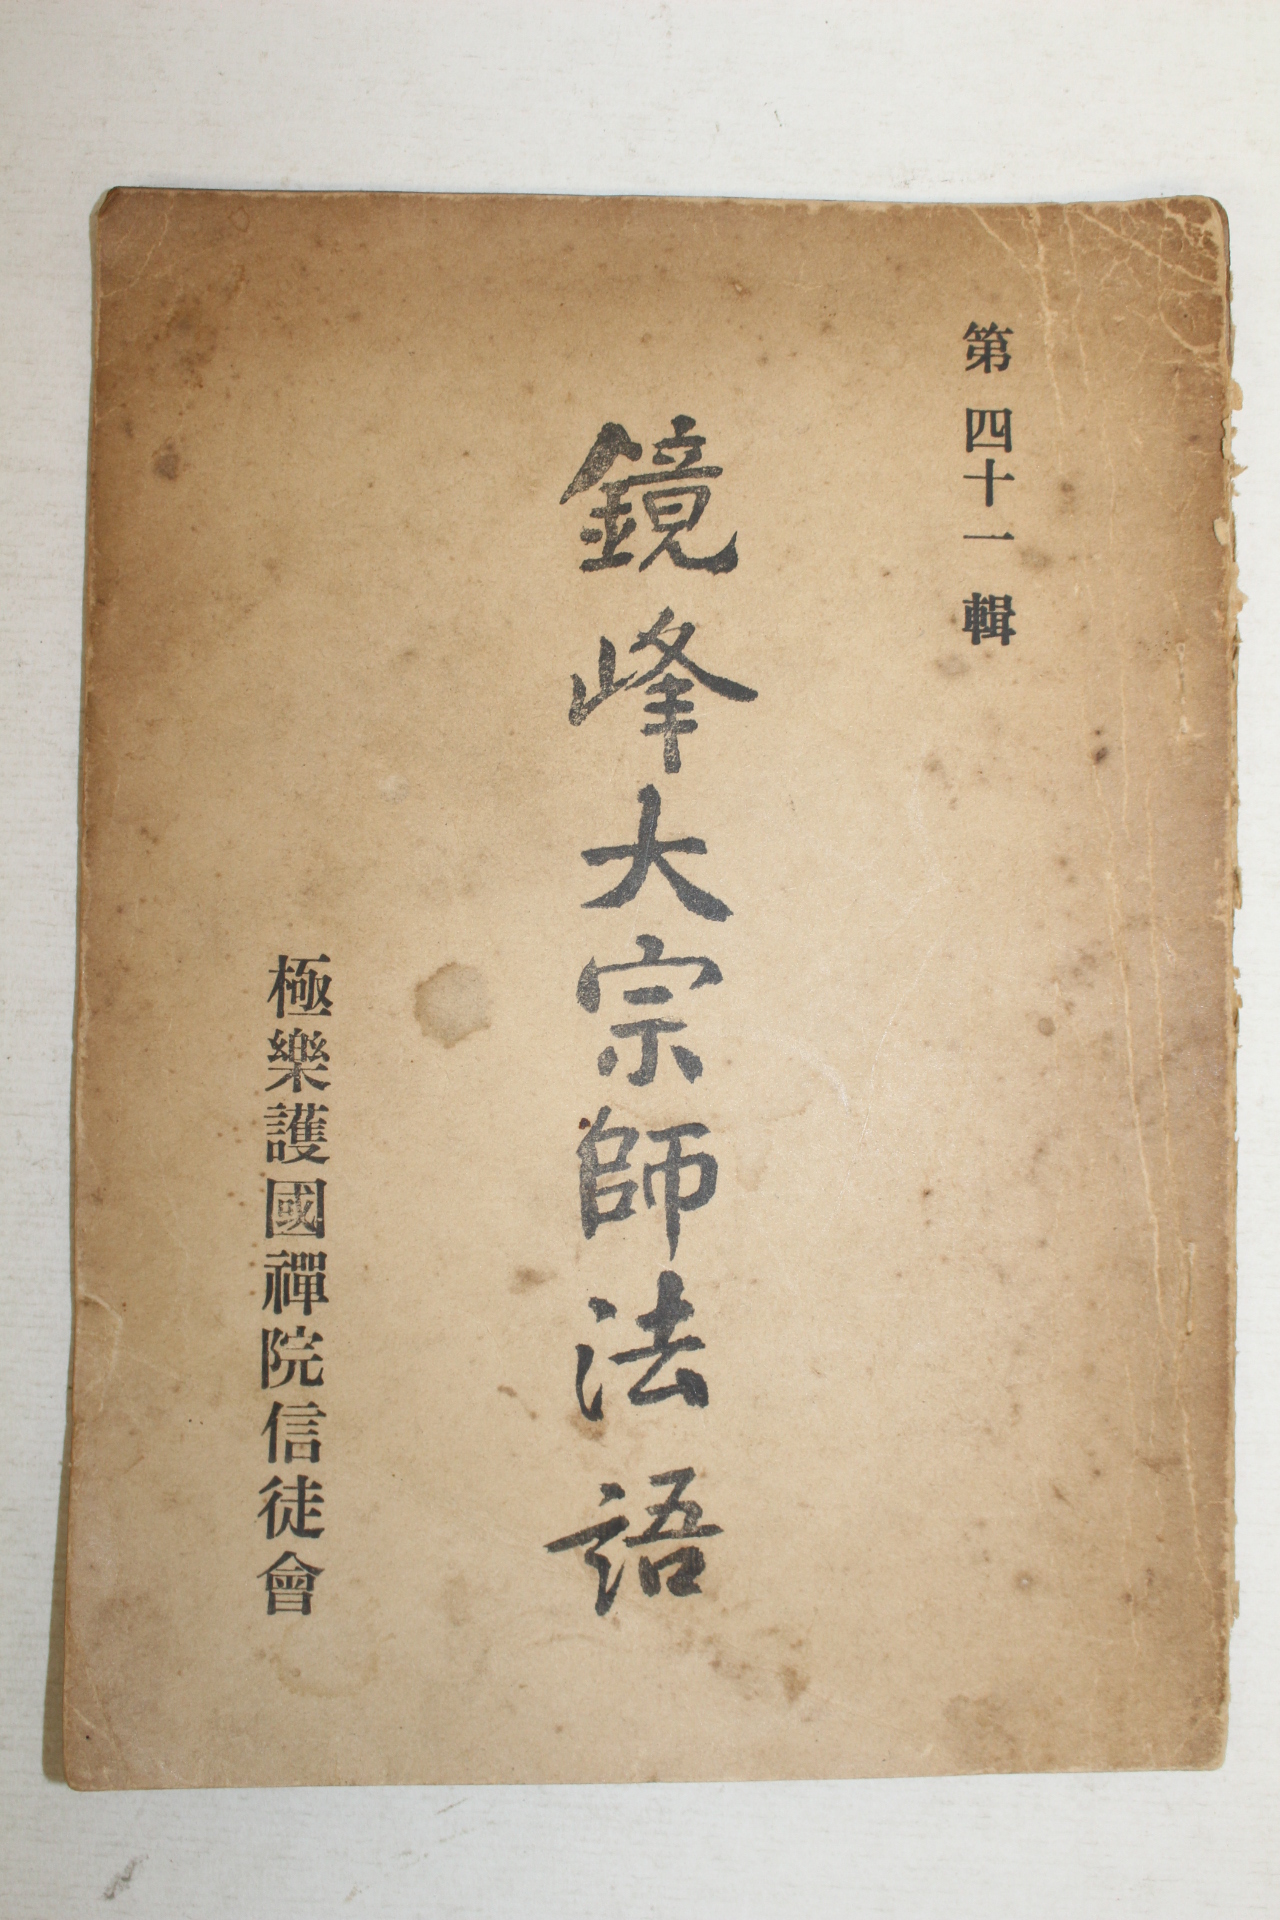 第四十一輯
鏡峰大宗師法語
極樂護國禪院信徒會